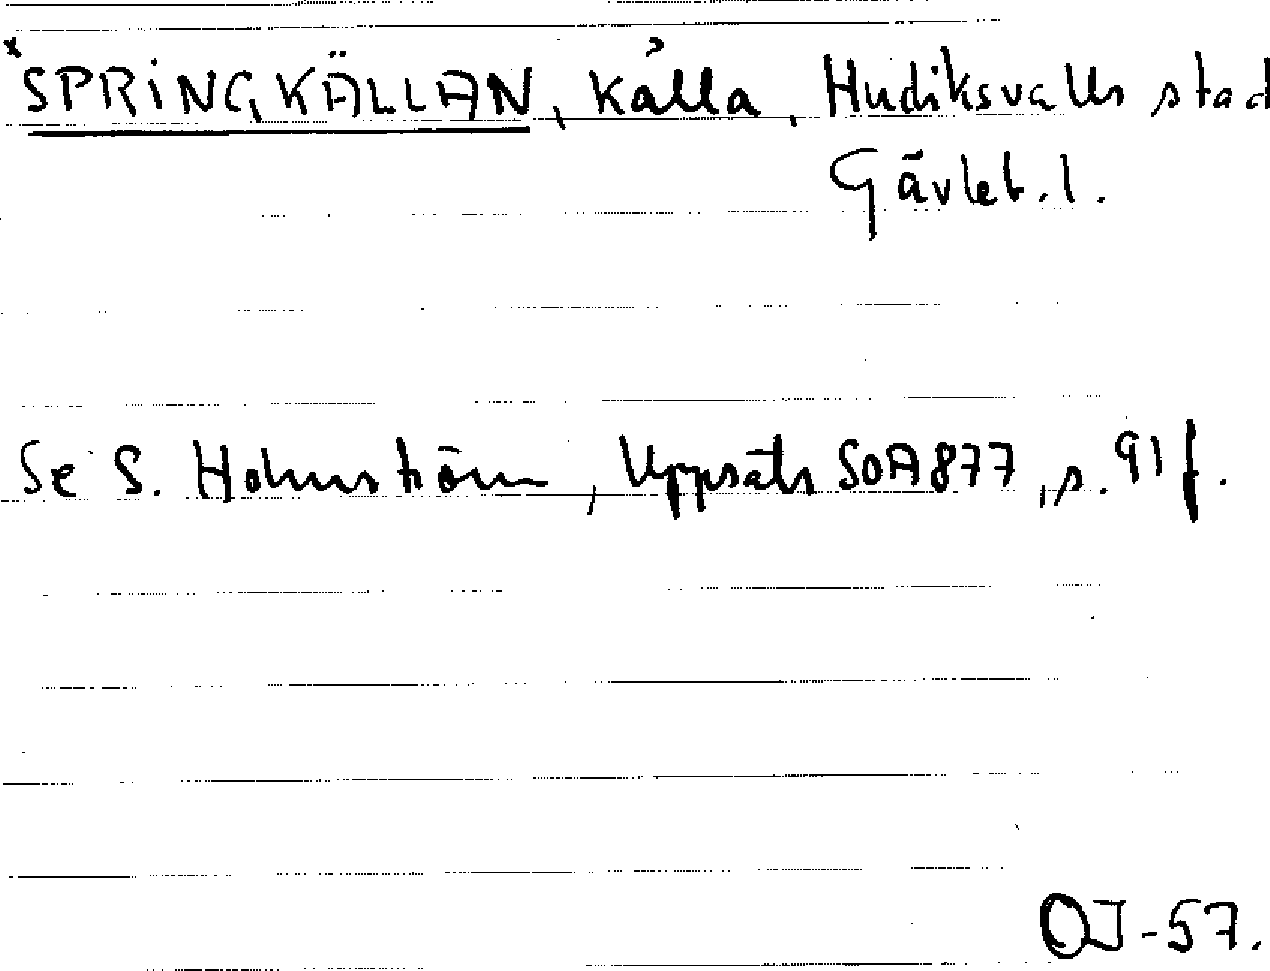 *SPRINGKÄLLAN, källa, Hudiksvalls stad
Gävleb. l.
Se S. Holmström, Uppsats SOA 877, s. 91 f.
OJ-57.